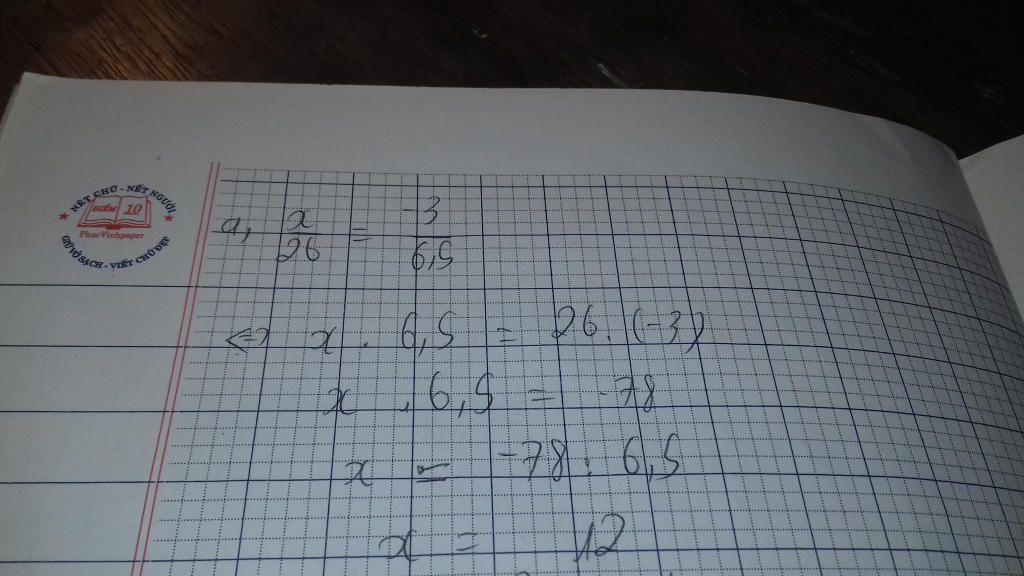 NÉT CHỮ - NẾT NGƯỜI
ĐIỂM 10
PhucVinhpaper
GIỮ VỞ SẠCH - VIẾT CHỮ ĐẸP
a, x/26 = -3/6,5
<=> x . 6,5 = 26. (-3)
x . 6,5 = -78
x = -78 : 6,5
x = 12